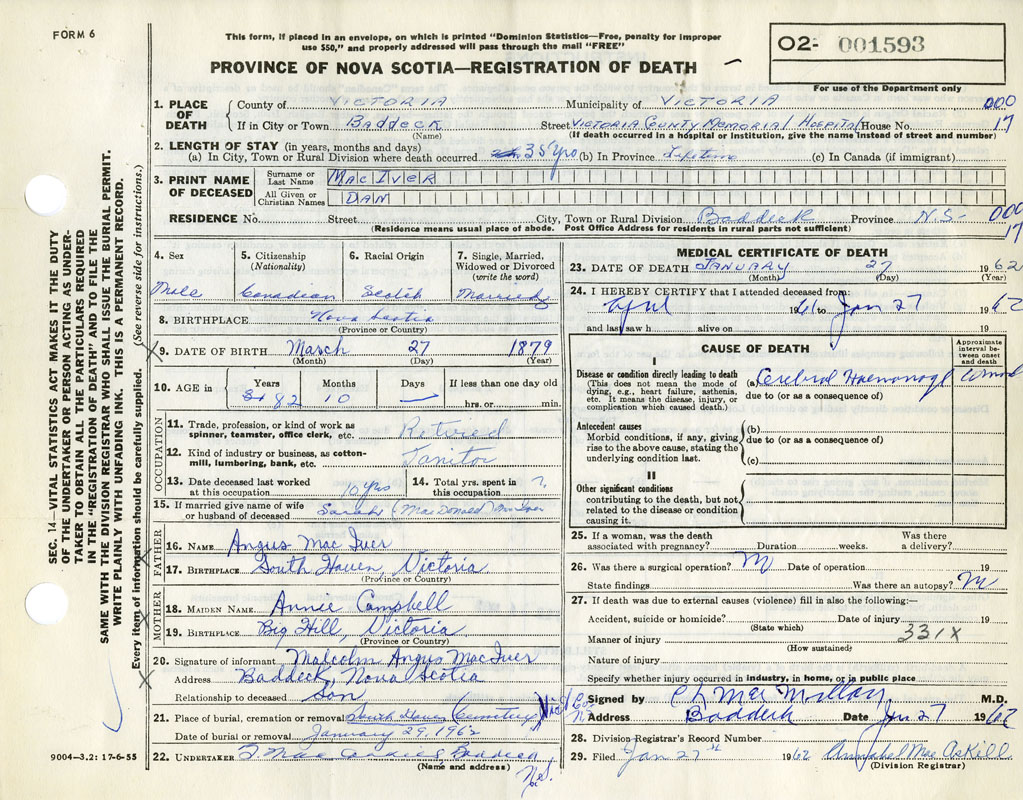 FORM 6
This form, if placed in an envelope, on which is printed "Dominion Statistics—Free, penalty for improper
use $50," and properly addressed will pass through the mail "FREE"
PROVINCE OF NOVA SCOTIA—REGISTRATION OF DEATH
O2- 001593
For use of the Department only
1. PLACE OF DEATH
County of VICTORIA Municipality of VICTORIA 000
If in City or Town Baddeck Street VICTORIA COUNTY MEMORIAL HOSPITAL House No. 17
(Name) (If death occurred in a hospital or institution, give the name instead of street and number)
2. LENGTH OF STAY (in years, months and days)
(a) In City, Town or Rural Division where death occurred 35 yrs (b) In Province Lifetime (c) In Canada (if immigrant)
3. PRINT NAME OF DECEASED
Surname or Last Name MacIver
All Given or Christian Names DAN
RESIDENCE No. Street City, Town or Rural Division Baddeck Province N.S- 000
(Residence means usual place of abode. Post Office Address for residents in rural parts not sufficient) 17
4. Sex Male
5. Citizenship (Nationality) Canadian
6. Racial Origin Scotch
7. Single, Married, Widowed or Divorced (write the word) Married
8. BIRTHPLACE Nova Scotia
(Province or Country)
X 9. DATE OF BIRTH March 27 1879
(Month) (Day) (Year)
10. AGE in Years 82 Months 10 Days — If less than one day old
hrs. or min.
OCCUPATION
11. Trade, profession, or kind of work as spinner, teamster, office clerk, etc. Retired
12. Kind of industry or business, as cotton-mill, lumbering, bank, etc. Janitor
13. Date deceased last worked at this occupation 10 yrs
14. Total yrs. spent in this occupation ?
15. If married give name of wife or husband of deceased Sarah (MacDonald) MacIver
FATHER
16. NAME Angus MacIver
X 17. BIRTHPLACE South Haven, Victoria
(Province or Country)
MOTHER
18. MAIDEN NAME Annie Campbell
X 19. BIRTHPLACE Big Hill, Victoria
(Province or Country)
20. Signature of informant Malcolm Angus MacIver
X Address Baddeck, Nova Scotia
Relationship to deceased Son
21. Place of burial, cremation or removal South Haven (Cemetery) Vic/ Co. N.S.
Date of burial or removal January 29, 1962
22. UNDERTAKER Baddeck N.S.
(Name and address)
MEDICAL CERTIFICATE OF DEATH
23. DATE OF DEATH JANUARY 27 1962
(Month) (Day) (Year)
24. I HEREBY CERTIFY that I attended deceased from:
April 1961 to Jan 27 1962
and last saw h alive on 19
CAUSE OF DEATH
Approximate interval between onset and death
I
Disease or condition directly leading to death
(This does not mean the mode of dying, e.g., heart failure, asthenia, etc. It means the disease, injury, or complication which caused death.)
(a) Cerebral
due to (or as a consequence of)
Antecedent causes
Morbid conditions, if any, giving rise to the above cause, stating the underlying condition last.
(b)
due to (or as a consequence of)
(c)
II
Other significant conditions
contributing to the death, but not related to the disease or condition causing it.
25. If a woman, was the death associated with pregnancy? Duration weeks. Was there a delivery?
26. Was there a surgical operation? Date of operation 19
State findings Was there an autopsy?
27. If death was due to external causes (violence) fill in also the following:—
Accident, suicide or homicide? Date of injury 19
(State which)
Manner of injury 331X
(How sustained)
Nature of injury
Specify whether injury occurred in industry, in home, or in public place
Signed by MacMillan M.D.
Address Baddeck Date Jan 27 1962
28. Division Registrar's Record Number
29. Filed Jan 27th 1962 Annabel MacAskill
(Division Registrar)
SEC. 14—VITAL STATISTICS ACT MAKES IT THE DUTY
OF THE UNDERTAKER OR PERSON ACTING AS UNDER-
TAKER TO OBTAIN ALL THE PARTICULARS REQUIRED
IN THE "REGISTRATION OF DEATH" AND TO FILE THE
SAME WITH THE DIVISION REGISTRAR WHO SHALL ISSUE THE BURIAL PERMIT.
WRITE PLAINLY WITH UNFADING INK. THIS IS A PERMANENT RECORD.
Every item of information should be carefully supplied. (See reverse side for instructions.)
9004—3.2: 17-6-55